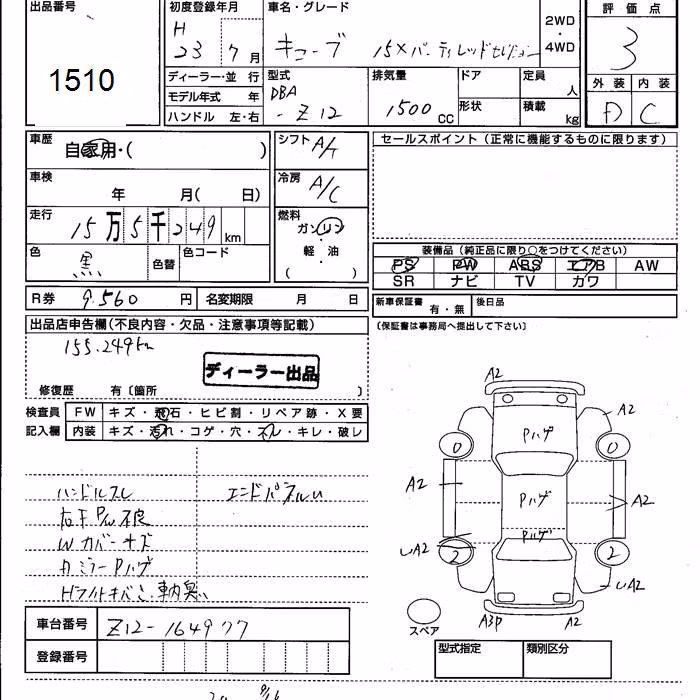 出品番号
1510
初度登録年月
H 23 7 月
車名・グレード
キューブ 15×パーティレッドセレクション
2WD
・
4WD
評価点
3
外装 内装
D C
ディーラー・並 行
モデル年式 年
ハンドル 左・右
型式
DBA
-Z12
排気量
1500 CC
ドア
形状
定員
人
積載
kg
車歴
自家用・( )
シフト A/T
車検
年 月( 日)
冷房 A/C
走行
15万5千249 km
燃料
ガソリン
軽・油
( )
色
黒
色替
色コード
R券 9.560 円
名変期限 月 日
セールスポイント (正常に機能するものに限ります)
装備品 (純正品に限り○をつけてください)
PS PW ABS エアB AW
SR ナビ TV カワ
新車保証書 有・無
後日品
(保証書は事務局へ提出して下さい)
出品店申告欄 (不良内容・欠品・注意事項等記載)
155.249km
ディーラー出品
修復歴 有〔箇所 〕
検査員
記入欄
FW キズ・飛石・ヒビ割・リペア跡・X要
内装 キズ・汚れ・コゲ・穴・スレ・キレ・破レ
ハンドルスレ
エンドパネルU
右フPW不良
Wカバーキズ
カミラーPハゲ
Hライトキバミ・車内臭い
車台番号 Z12-164977
登録番号
A2
A2
0
Pハゲ
0
A2
Pハゲ
A2
Pハゲ
UA2
2
2
UA2
A3P
A2
スペア
型式指定
類別区分